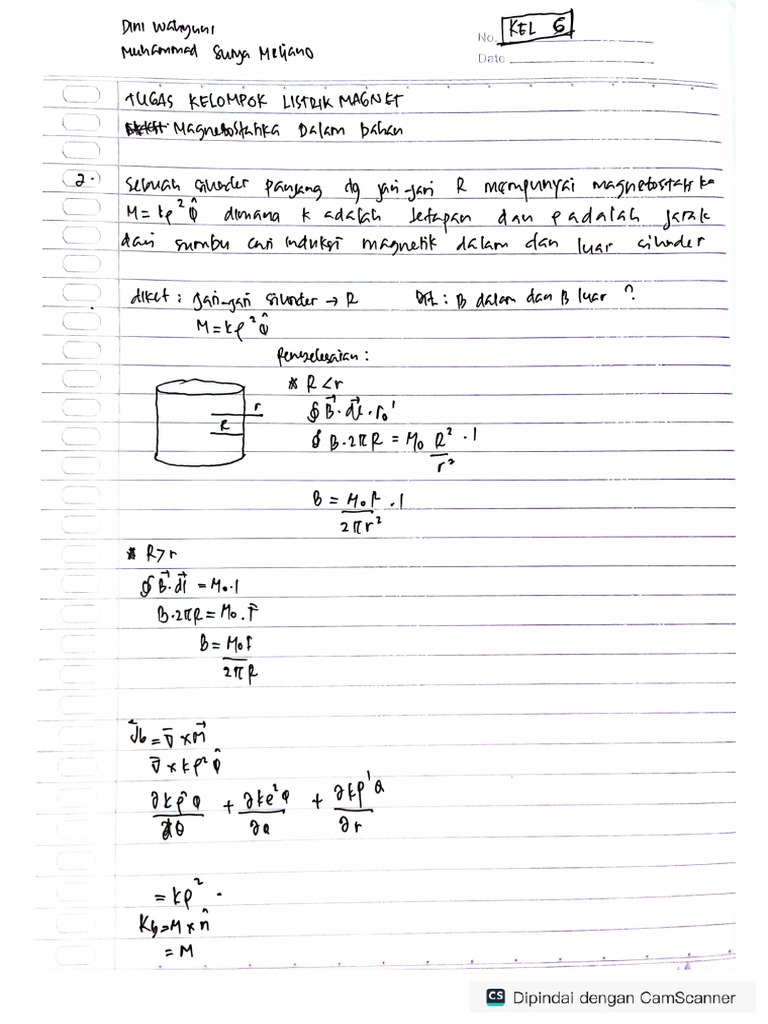 Dini Wahyuni
Muhammad Surya Meliano
No.
KEL 6
Date
TUGAS KELOMPOK LISTRIK MAGNET
Magnetostatika Dalam bahan
2. Sebuah silinder panjang dg jari-jari R mempunyai magnetostatika
M = kρ² φ̂ dimana k adalah tetapan dan ρ adalah jarak
dari sumbu cari induksi magnetik dalam dan luar silinder
diket : jari-jari silinder → R
Dit : B dalam dan B luar ?
M = kρ² φ̂
Penyelesaian :
* R < r
∮ B⃗ · dl⃗ · r₀'
r
R
∮ B · 2πR = M₀ R²/r² · I
B = M₀R/2πr² · I
* R > r
∮ B⃗ · dl⃗ = M₀ · I
B · 2πR = M₀ · I
B = M₀I/2πR
Jb = ∇ × M⃗
∇ × kρ² φ̂
= kρ² ·
Kb = M × n̂
= M
CS Dipindai dengan CamScanner